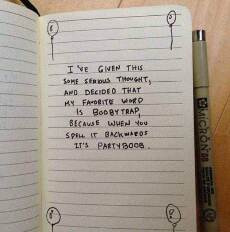 I'VE GIVEN THIS
SOME SERIOUS THOUGHT,
AND DECIDED THAT
MY FAVORITE WORD
IS BOOBYTRAP,
BECAUSE WHEN YOU
SPELL IT BACKWARDS
IT'S PARTYBOOB.
MICRON 08